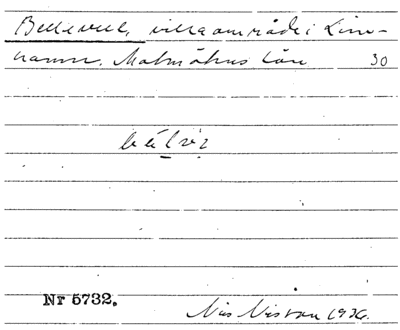 Bellevue, villaområde i Lim-
hamn. Malmöhus län 30
Nr 5732.
Nils Nilsson 1936.